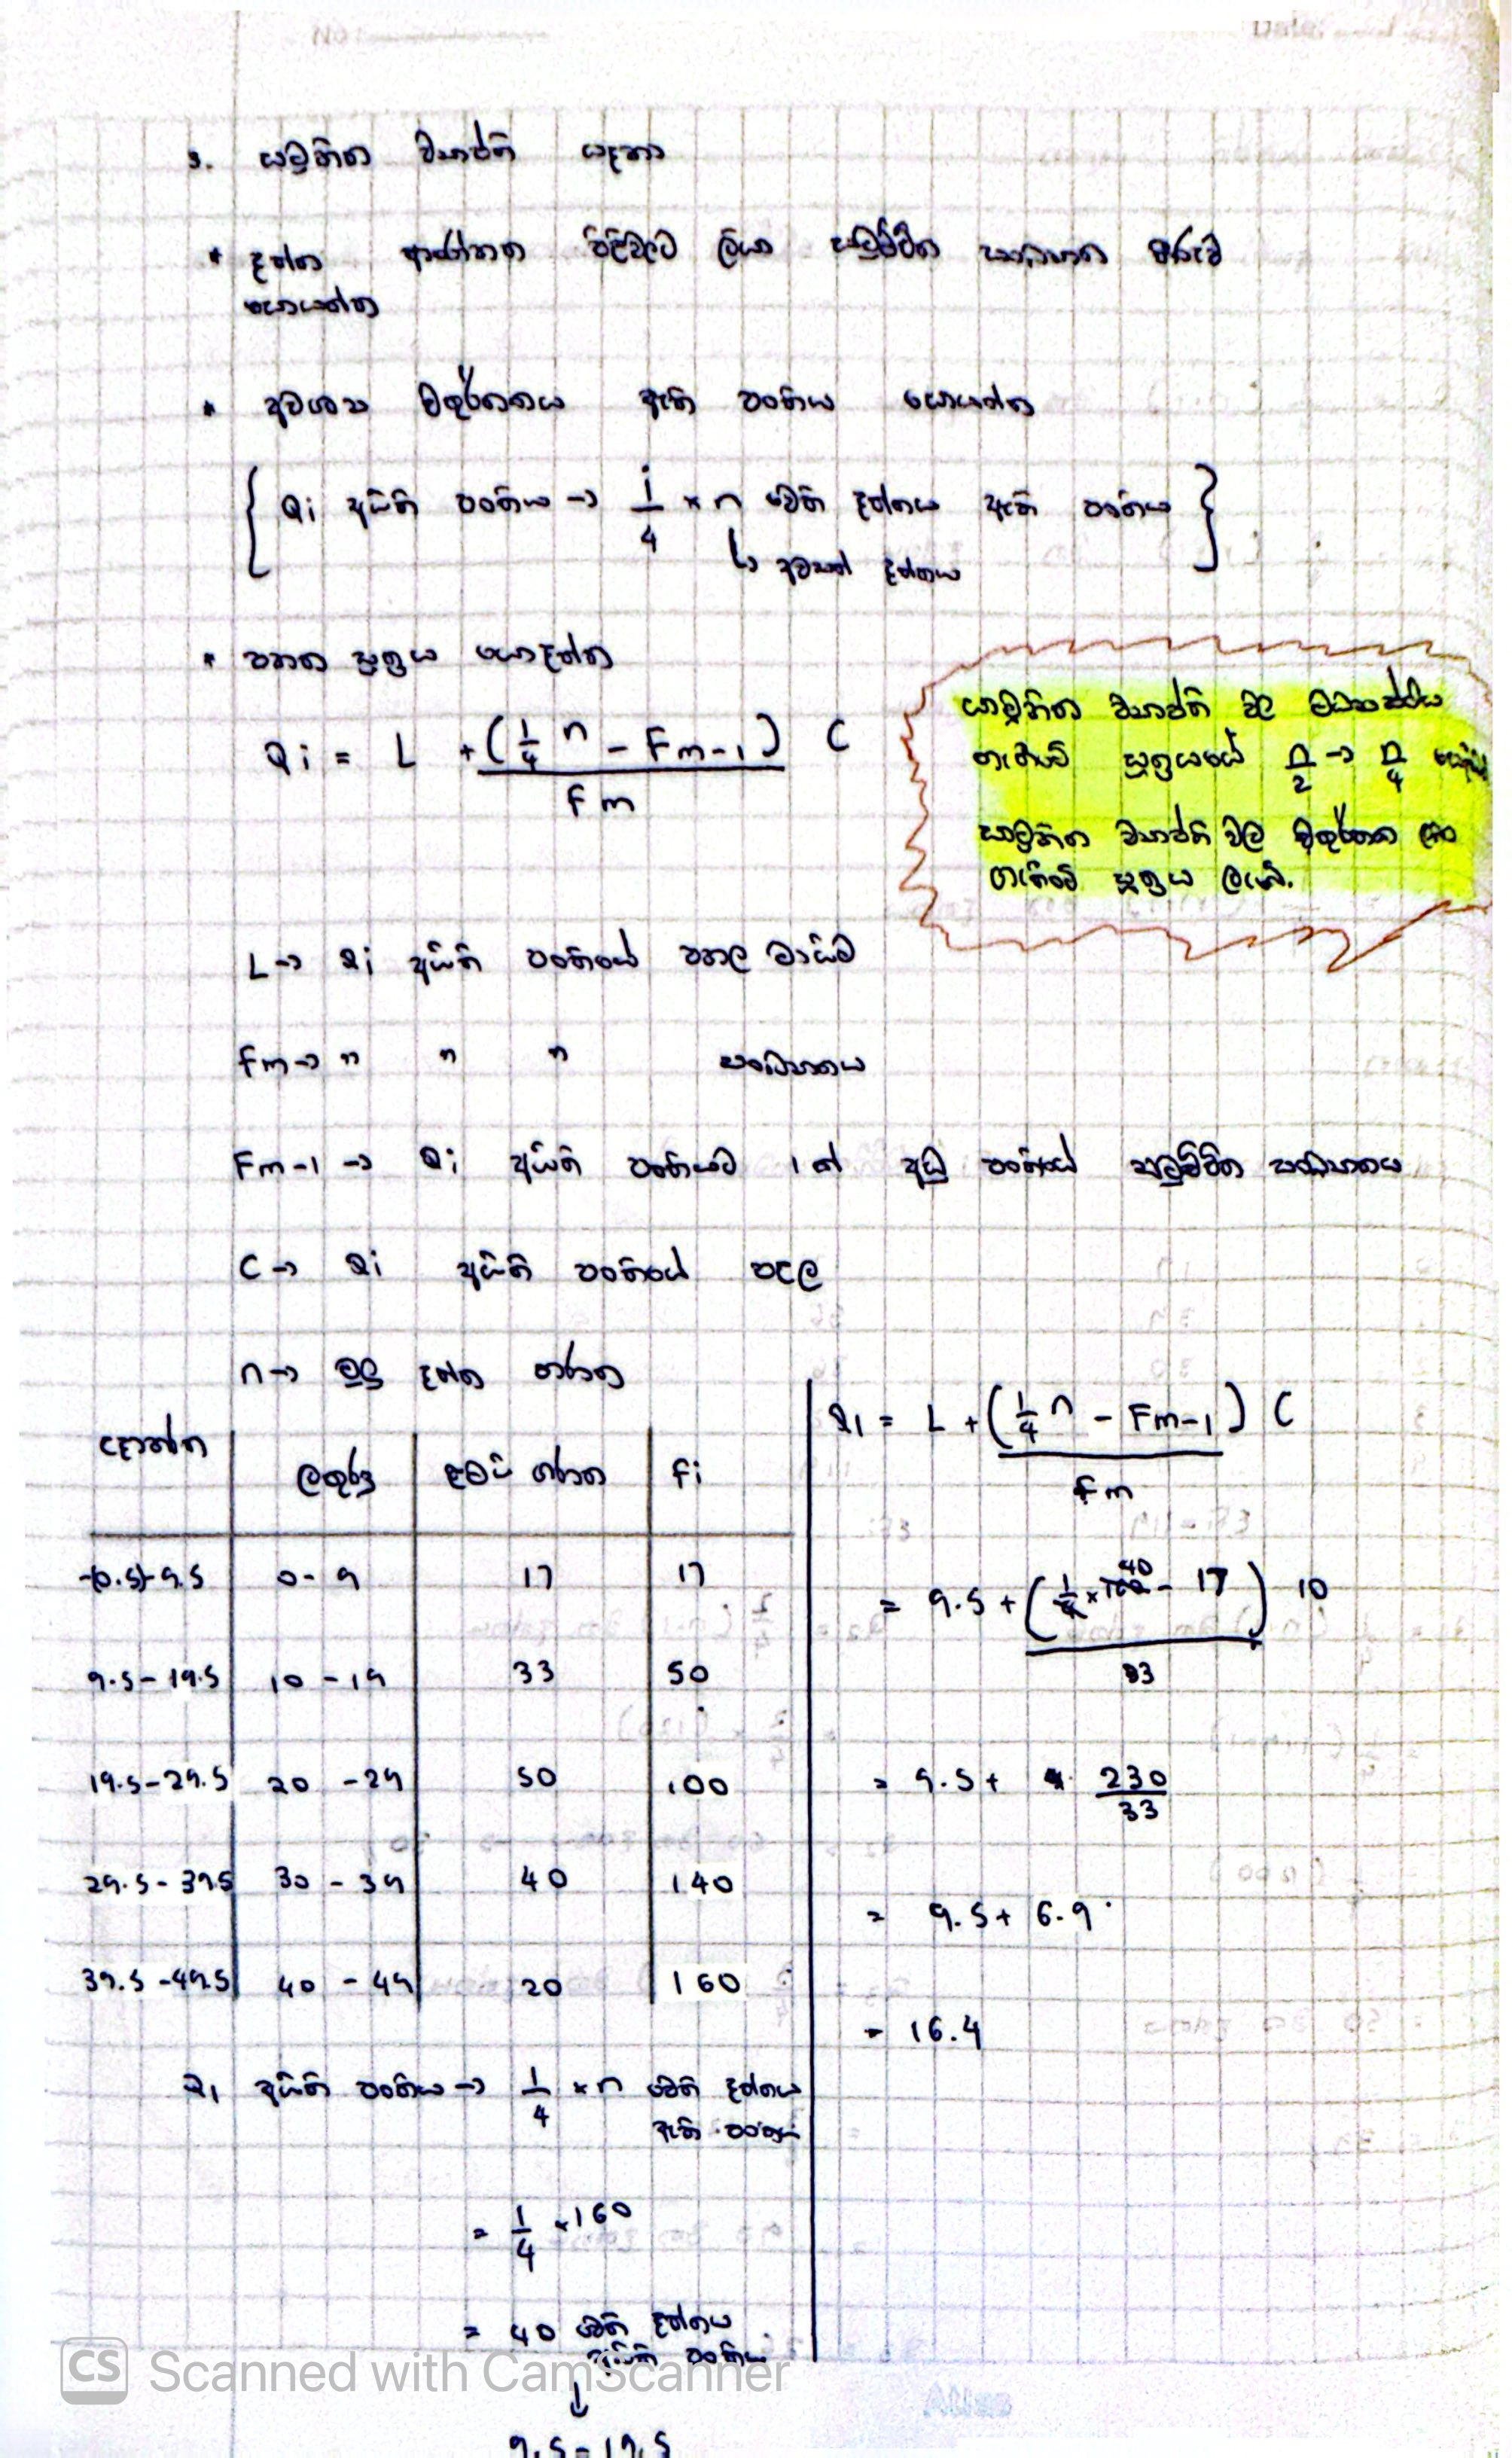 3. සමූහිත ව්‍යාප්ති සඳහා
* දත්ත ආරෝහණ පිළිවලට ලියා සමුච්චිත සංඛ්‍යාත තීරුව
සොයන්න
* අවශ්‍ය චතුර්ථකය ඇති පංතිය සොයන්න
{ Qi අයිති පංතිය → i/4 × n වෙනි දත්තය ඇති පංතිය }
↳ අවසන් දත්තය
* පහත සූත්‍රය යොදන්න
Qi = L + (1/4 n - Fm-1) C
Fm
සමූහිත ව්‍යාප්ති වල මධ්‍යස්ථය
සූත්‍රයයේ n/2 → n/4
සමූහිත ව්‍යාප්ති වල චතුර්ථක
සූත්‍රය ලැබේ.
L → Qi අයිති පංතියේ පහල මායිම
Fm → " " " සංඛ්‍යාතය
Fm-1 → Qi අයිති පංතියට 1ක් අඩු පංතියේ සමුච්චිත සංඛ්‍යාතය
C → Qi අයිති පංතියේ පළල
n → මුලු දත්ත ගණන
ලකුණු ළමයි ගණන Fi
-(0.5)-9.5 0-9 17 17
9.5-19.5 10-19 33 50
19.5-29.5 20-29 50 100
29.5-39.5 30-39 40 140
39.5-49.5 40-49 20 160
Q1 අයිති පංතිය → 1/4 × n වෙනි දත්තය
ඇති පංතිය
= 1/4 × 160
= 40 වෙනි දත්තය
අයිති පංතිය
↓
9.5-19.5
Q1 = L + (1/4 n - Fm-1) C
Fm
= 9.5 + (1/4 × 160 40 - 17) 10
33
= 9.5 + 230/33
= 9.5 + 6.9
= 16.4
CS Scanned with CamScanner